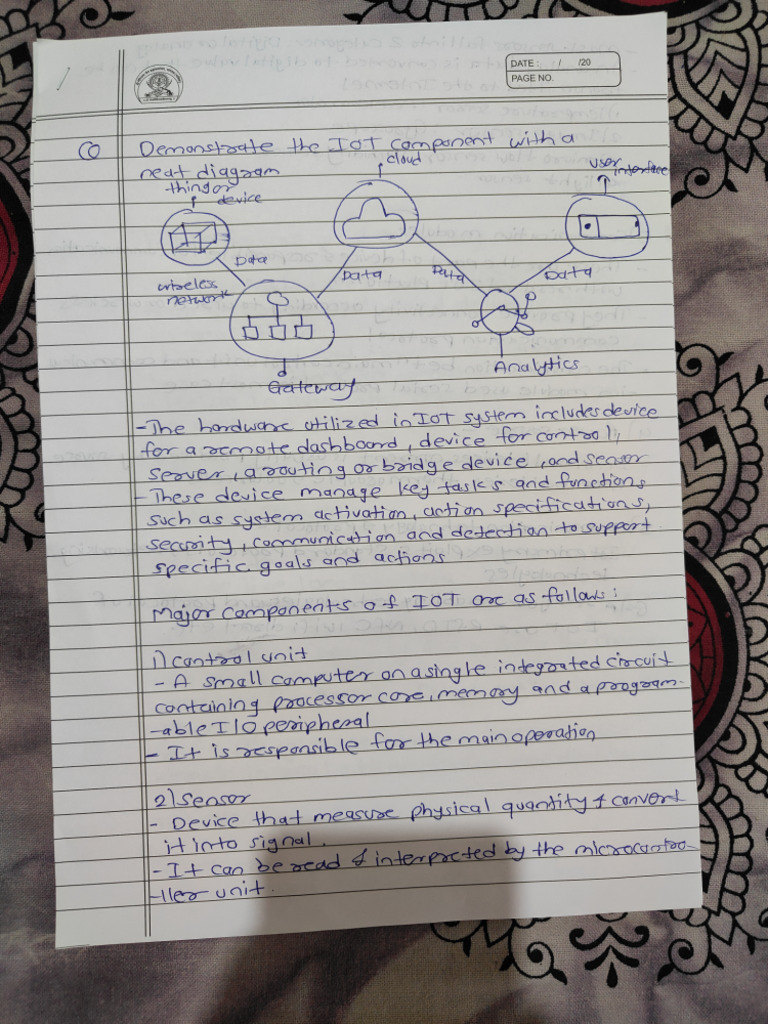 DATE : / /20
PAGE NO.
Demonstrate the IOT component with a
neat diagram
cloud
user
interface
thing or
device
Data
wireless
network
Data
Data
Data
Analytics
Gateway
- The hardware utilized in IOT system includes device
for a remote dashboard, device for control,
server, a routing or bridge device, and sensor
- These device manage key tasks and functions
such as system activation, action specifications,
security, communication and detection to support
specific goals and actions
Major components of IOT are as follows:
1) control unit
- A small computer on a single integrated circuit
containing processor core, memory and a program-
-able I/O peripheral
- It is responsible for the main operation
2) Sensor
- Device that measure physical quantity & convert
it into signal.
- It can be read & interpreted by the microcontro-
-ller unit.